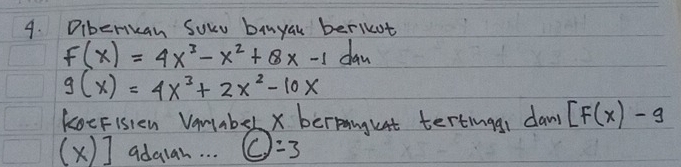 4. Diberikan suku banyak berikut
f(x) = 4x³ - x² + 8x - 1 dan
g(x) = 4x³ + 2x² - 10x
koefisien variabel x berpangkat tertinggi dari [F(x) - g
(x)] adalah... Ⓒ = 3